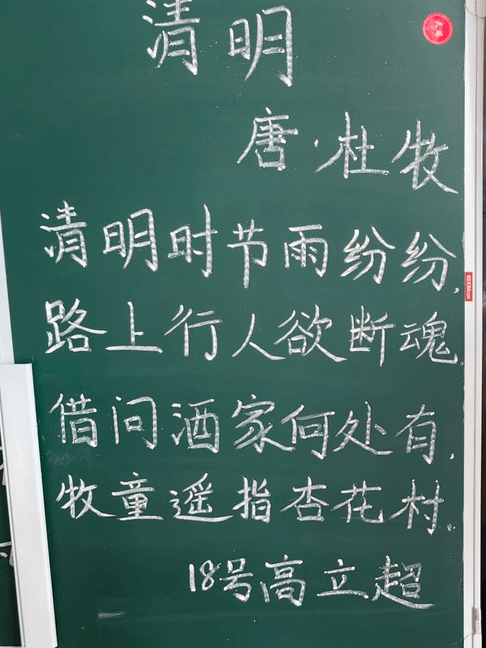 清明
唐·杜牧
清明时节雨纷纷,
路上行人欲断魂.
借问酒家何处有.
牧童遥指杏花村.
18号高立超
60X90cm